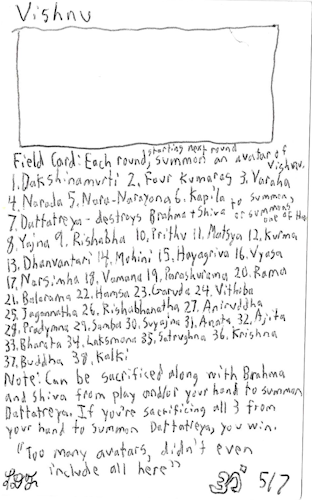 Vishnu
Field Card: Each round, starting next round, summon an avatar of Vishnu.
1. Dakshinamurti 2. Four Kumaras 3. Varaha
4. Narada 5. Nara-Narayona 6. Kapila
7. Dattatreya - destroys Brahma + Shiva to summon, or summons one of the
8. Yajna 9. Rishabha 10. Prithu 11. Matsya 12. Kurma
13. Dhanvantari 14. Mohini 15. Hayagriva 16. Vyasa
17. Narsimha 18. Vamana 19. Parashurama 20. Rama
21. Balarama 22. Hamsa 23. Garuda 24. Vithoba
25. Jagannatha 26. Rishabhanatha 27. Aniruddha
28. Pradymna 29. Samba 30. Suyajna 31. Anata 32. Ajita
33. Bharata 34. Laksmana 35. Satrughna 36. Krishna
37. Buddha 38. Kalki
Note: Can be sacrificed along with Brahma
and Shiva from play and/or your hand to summon
Dattatreya. If you're sacrificing all 3 from
your hand to summon Dattatreya, you win.
"Too many avatars, didn't even
include all here"
5/7